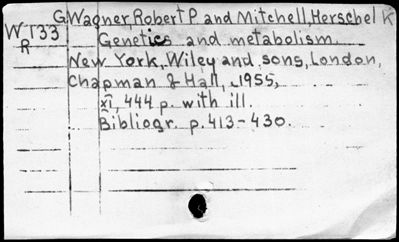 G Wagner, Robert P. and Mitchell, Herschel K
WT33 Genetics and metabolism.
R
New York, Wiley and sons, London,
Chapman & Hall, 1955,
XI, 444 p. with ill.
Bibliogr. p. 413-430.